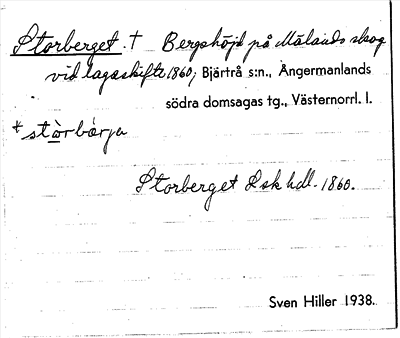 Storberget. † Bergshöjd på Målands skog
vid lagaskifte 1860; Bjärtrå s:n., Ångermanlands
södra domsagas tg., Västernorrl. l.
stòrbárja
Storberget Lsk hdl. 1860.
Sven Hiller 1938.